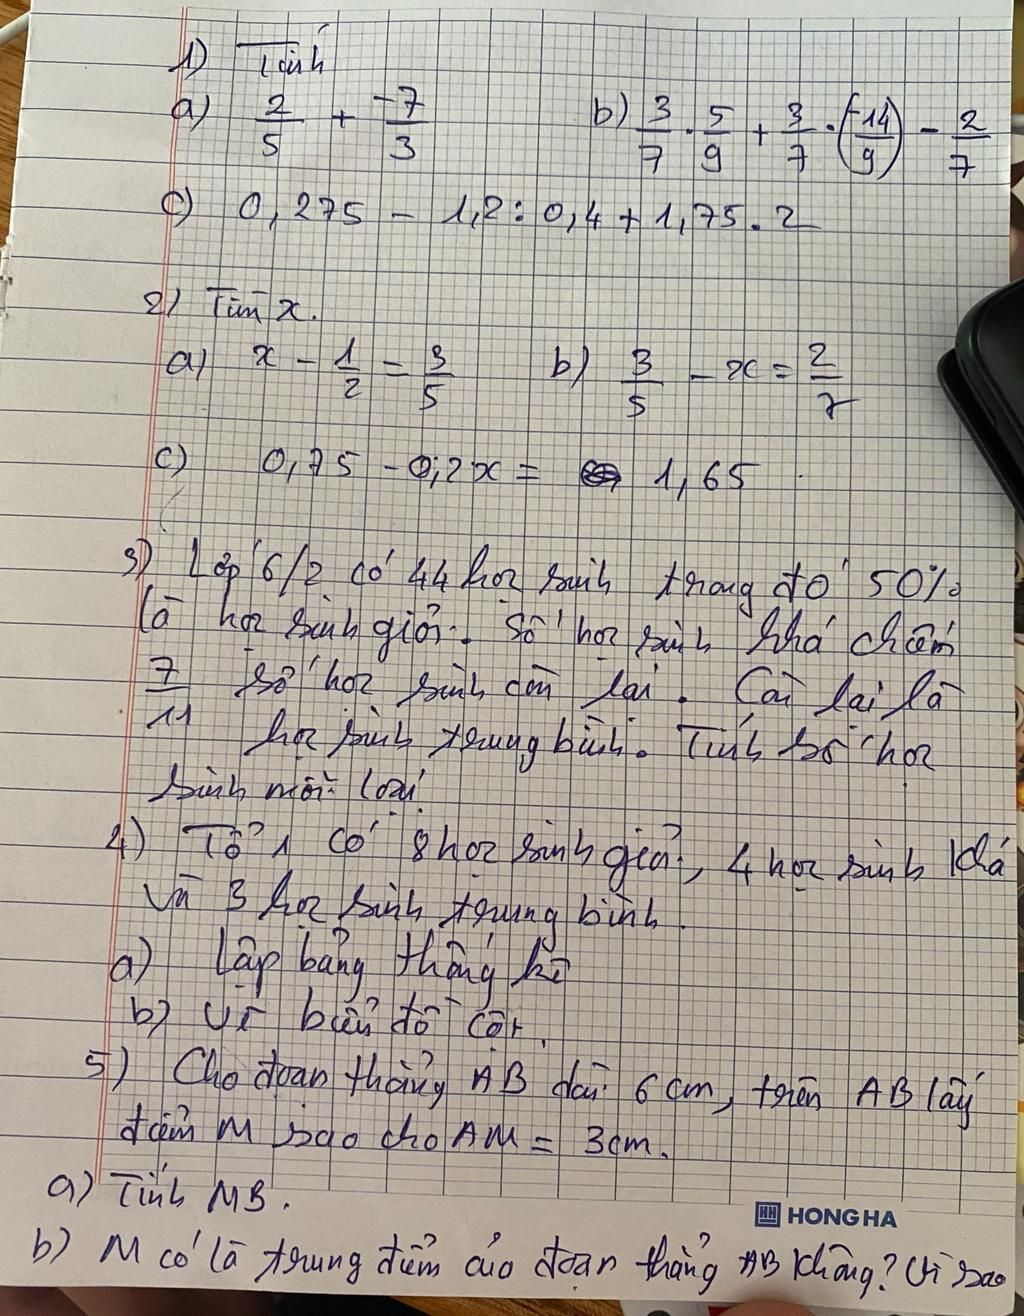 1) Tính
a) 2/5 + -7/3 b) 3/7 . 5/9 + 3/7 . (-14/9) - 2/7
c) 0,275 - 1,2 : 0,4 + 1,75 . 2
2) Tìm x.
a) x - 1/2 = 3/5 b) 3/5 - x = 2/7
c) 0,75 - 0,2x = 1,65
3) Lớp 6/2 có 44 học sinh trong đó 50%
là học sinh giỏi. Số học sinh khá chiếm
7/11 số học sinh còn lại. Còn lại là
học sinh trung bình. Tính số học
sinh mỗi loại
4) Tổ 1 có 8 học sinh giỏi, 4 học sinh khá
và 3 học sinh trung bình.
a) Lập bảng thống kê
b) Vẽ biểu đồ cột.
5) Cho đoạn thẳng AB dài 6 cm, trên AB lấy
điểm M sao cho AM = 3cm.
a) Tính MB.
HH HONG HA
b) M có là trung điểm của đoạn thẳng AB không? Vì sao